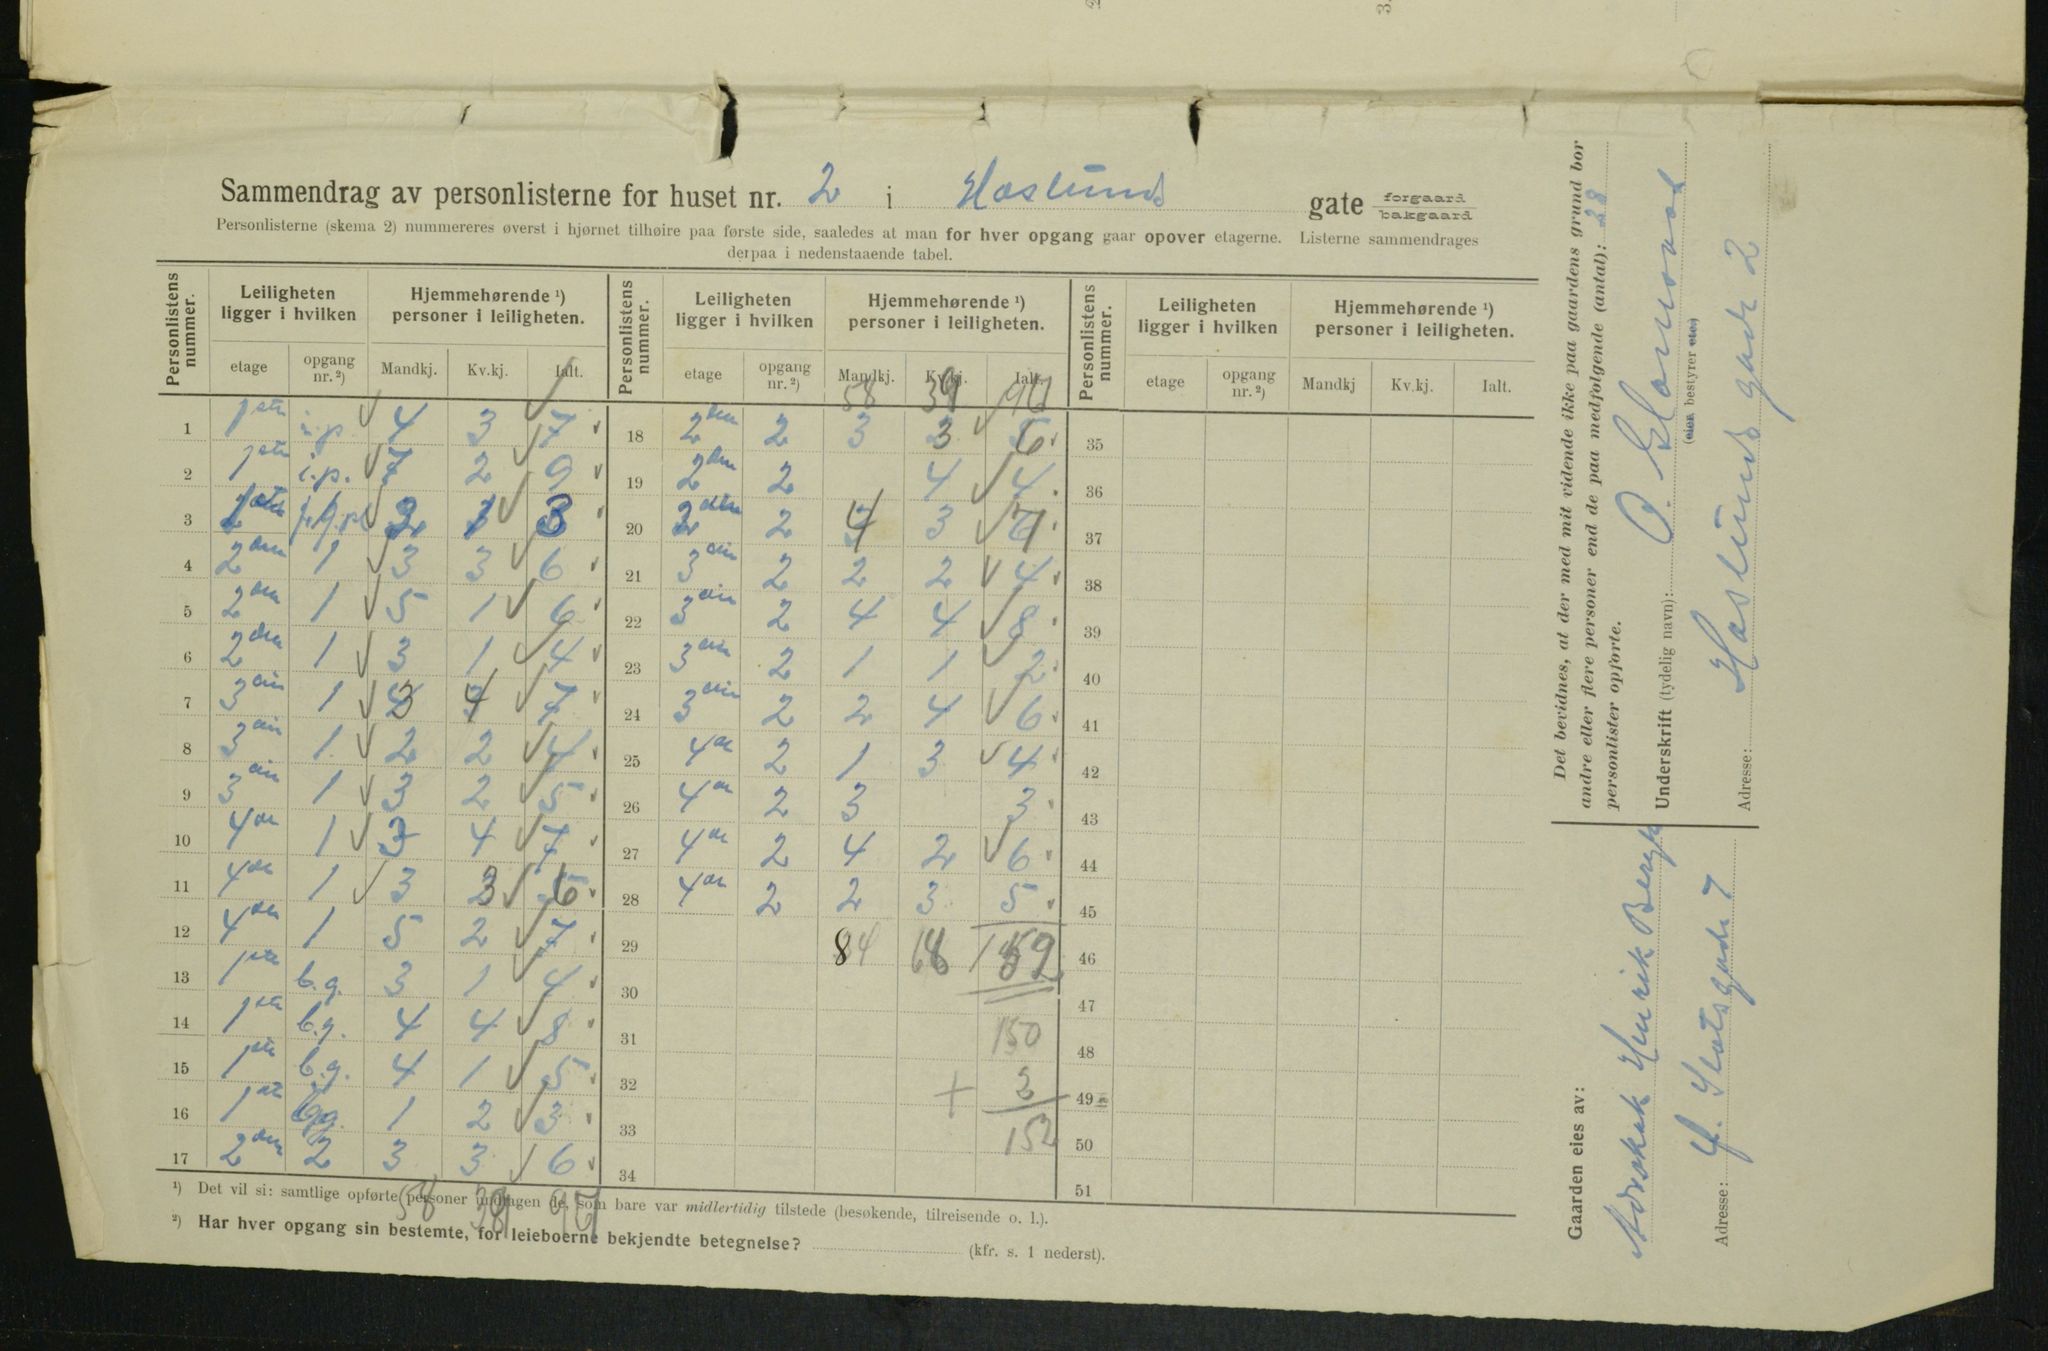 Sammendrag av personlisterne for huset nr. 2 i Haslunds gate forgaard bakgaard
Personlisterne (skema 2) nummereres øverst i hjørnet tilhøire paa første side, saaledes at man for hver opgang gaar opover etagerne. Listerne sammendrages
derpaa i nedenstaaende tabel.
Personlistens nummer. Leiligheten ligger i hvilken Hjemmehørende ¹) personer i leiligheten. Personlistens nummer. Leiligheten ligger i hvilken Hjemmehørende ¹) personer i leiligheten. Personlistens nummer. Leiligheten ligger i hvilken Hjemmehørende ¹) personer i leiligheten.
etage opgang nr. ²) Mandkj. Kv.kj. Ialt. etage opgang nr. ²) Mandkj. Kv.kj. Ialt. etage opgang nr. ²) Mandkj Kv.kj. Ialt.
58 39 97
1 1ste i.p. 4 3 7 18 2den 2 3 3 6 35
2 1ste i.p. 7 2 9 19 2den 2 4 4 36
3 1ste 2 1 3 20 2den 2 4 3 7 37
4 2den 1 3 3 6 21 3die 2 2 2 4 38
5 2den 1 5 1 6 22 3die 2 4 4 8 39
6 2den 1 3 1 4 23 3die 2 1 1 2 40
7 3die 1 3 4 7 24 3die 2 2 4 6 41
8 3die 1 2 2 4 25 4de 2 1 3 4 42
9 3die 1 3 2 5 26 4de 2 3 3 43
10 4de 1 3 4 7 27 4de 2 4 2 6 44
11 4de 1 3 3 6 28 4de 2 2 3 5 45
12 4de 1 5 2 7 29 84 68 152 46
13 1ste b.g. 3 1 4 30 47
14 1ste b.g. 4 4 8 31 150 48
15 1ste b.g. 4 1 5 32 + 2 49
16 1ste b.g. 1 2 3 33 152 50
17 2den 2 3 3 6 34 51
58 39 97
¹) Det vil si: samtlige opførte personer undtagen de, som bare var midlertidig tilstede (besøkende, tilreisende o. l.).
²) Har hver opgang sin bestemte, for leieboerne bekjendte betegnelse? (kfr. s. 1 nederst).
Det bevidnes, at der med mit vidende ikke paa gaardens grund bor
andre eller flere personer end de paa medfølgende (antal): 28
personlister opførte.
Underskrift (tydelig navn):
(eier bestyrer etc.)
Adresse: Haslunds gade 2
Gaarden eies av:
Henrik
Adresse: Slotsgade 7